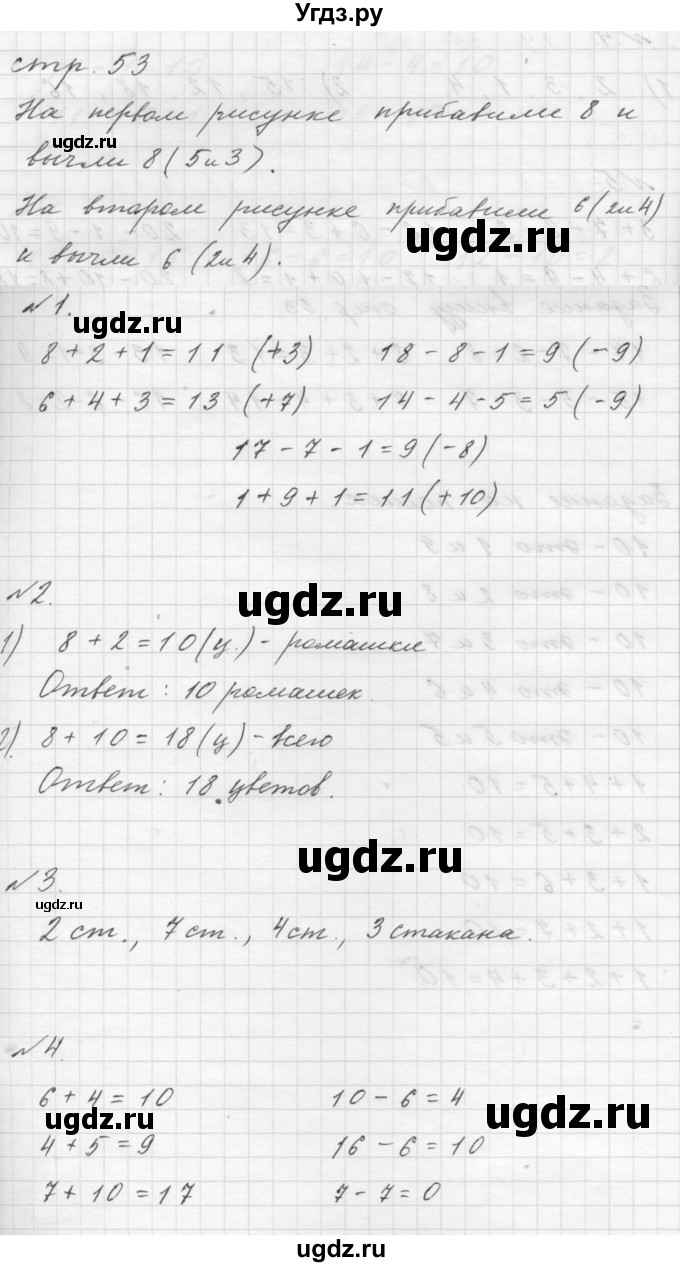 Угдз.ру
стр. 53
На первом рисунке прибавили 8 и
вычли 8 (5 и 3).
На втором рисунке прибавили 6 (2 и 4)
и вычли 6 (2 и 4).
№1.
8 + 2 + 1 = 11 (+3) 18 - 8 - 1 = 9 (-9)
6 + 4 + 3 = 13 (+7) 14 - 4 - 5 = 5 (-9)
17 - 7 - 1 = 9 (-8)
1 + 9 + 1 = 11 (+10)
№2.
1) 8 + 2 = 10 (ц.) - ромашки
Ответ: 10 ромашек.
2). 8 + 10 = 18 (ц) - всего
Ответ: 18 цветов.
№3.
2 ст., 7 ст., 4 ст., 3 стакана.
№4.
6 + 4 = 10 10 - 6 = 4
4 + 5 = 9 16 - 6 = 10
7 + 10 = 17 7 - 7 = 0
ugdz.ru
ugdz.ru
ugdz.ru
ugdz.ru
ugdz.ru
ugdz.ru
ugdz.ru
ugdz.ru
ugdz.ru